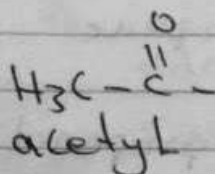 O
||
H3C-C-
acetyl